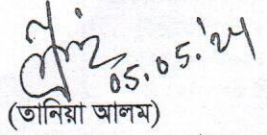 05.05.'24
(তানিয়া আলম)